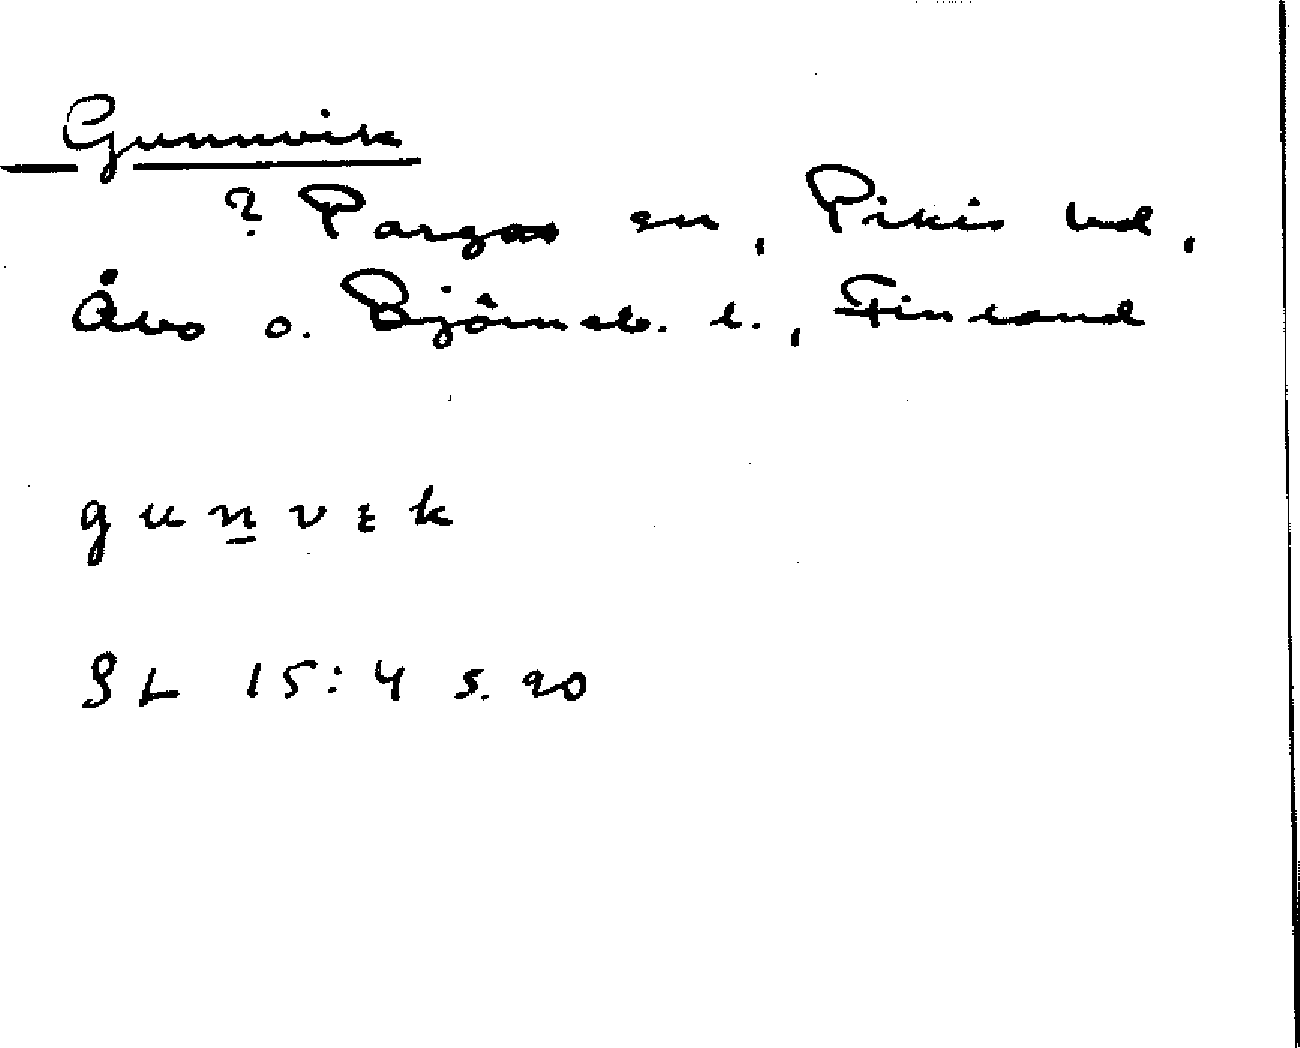 Gunnvik
? Pargas sn, Pikis hd,
Åbo o. Björneb. l., Finland
gunvɩk
SL 15:4 s. 90